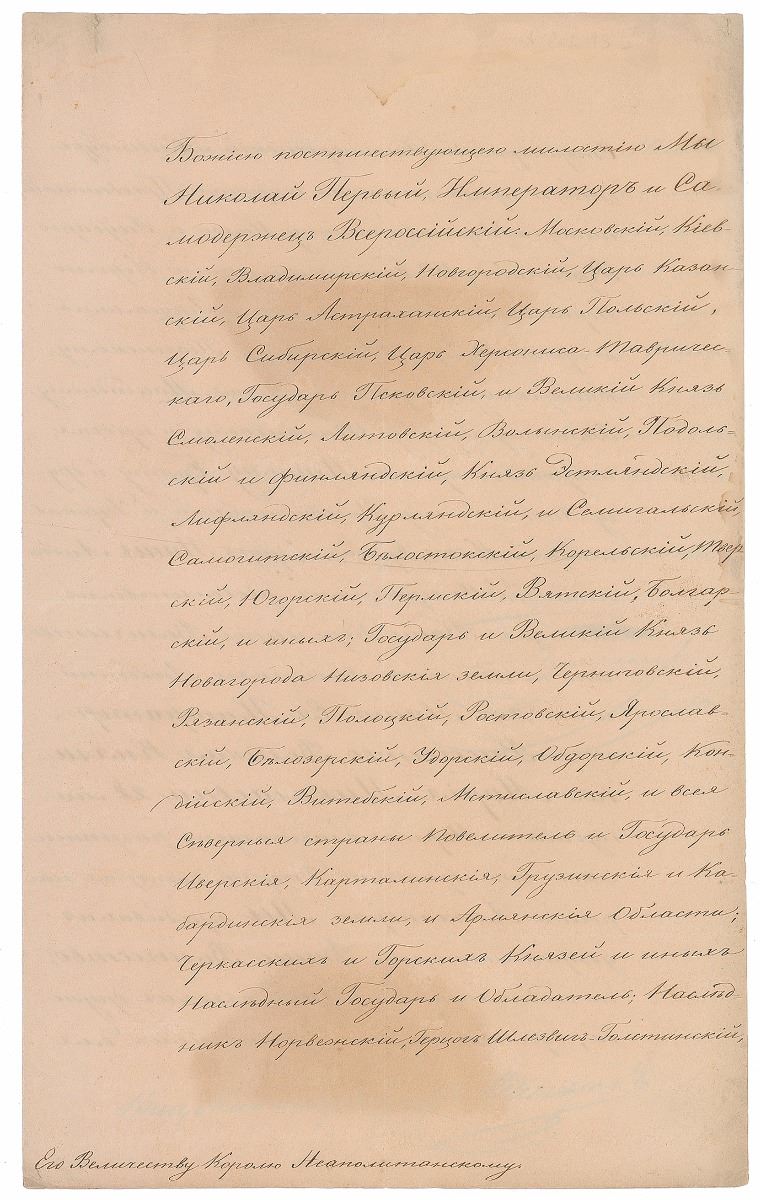 Божіею поспѣшествующею милостію Мы
Николай Первый, Императоръ и Са-
модержецъ Всероссійскій: Московскій, Кіев-
скій, Владимирскій, Новгородскій, Царь Казан-
скій, Царь Астраханскій, Царь Польскій,
Царь Сибирскій, Царь Херсониса-Тавричес-
каго, Государь Псковскій, и Великій Князь
Смоленскій, Литовскій, Волынскій, Подоль-
скій и Финляндскій, Князь Эстляндскій,
Лифляндскій, Курляндскій, и Семигальскій,
Самогитскій, Бѣлостокскій, Корельскій, Твер-
скій, Югорскій, Пермскій, Вятскій, Болгар-
скій, и иныхъ; Государь и Великій Князь
Новагорода Низовскія земли, Черниговскій,
Рязанскій, Полоцкій, Ростовскій, Ярослав-
скій, Бѣлозерскій, Удорскій, Обдорскій, Кон-
дійскій, Витебскій, Мстиславскій, и всея
Сѣверныя страны Повелитель и Государь
Иверскія, Карталинскія, Грузинскія и Ка-
бардинскія земли, и Армянскія Области;
Черкасскихъ и Горскихъ Князей и иныхъ
Наслѣдный Государь и Обладатель; Наслѣд-
никъ Норвежскій, Герцогъ Шлезвигъ-Голстинскій,
Его Величеству Королю Неаполитанскому.